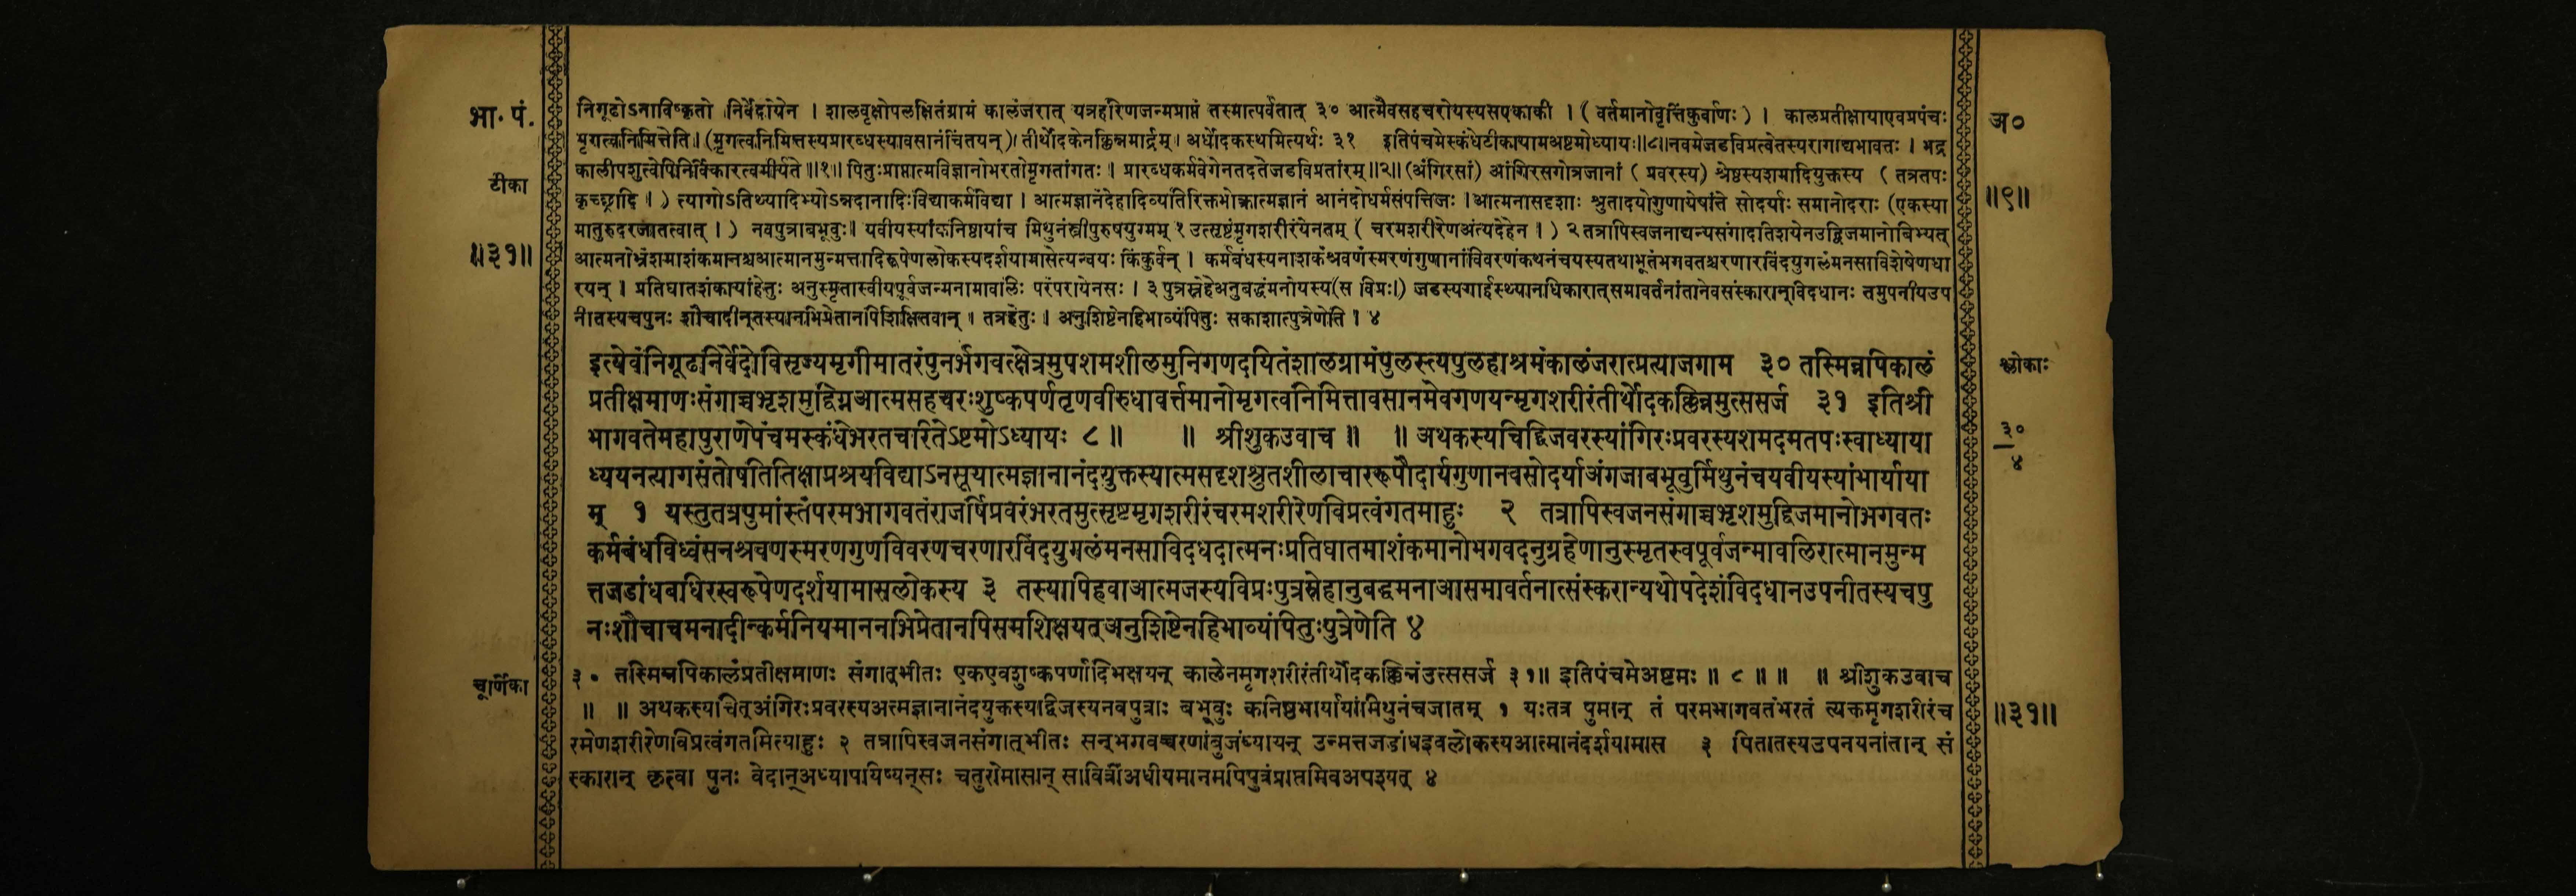 भा. पं.
टीका
॥३१॥
निगूढोऽनाविष्कृतो निर्वेदोयेन । शालवृक्षोपलक्षितंग्रामं कालंजरात् यत्रहरिणजन्मप्राप्तं तस्मात्पर्वतात् ३० आत्मैवसहचरोयस्यसएकाकी । ( वर्तमानोवृत्तिंकुर्वाणः ) । कालप्रतीक्षायाएवप्रपंचः
मृगत्वनिमित्तेति । (मृगत्वनिमित्तस्यप्रारब्धस्यावसानंचिंतयन् )। तीर्थोदकेनक्लिन्नमार्द्रम् । अर्धोदकस्थमित्यर्थः ३१ इतिपंचमेस्कंधेटीकायामअष्टमोध्यायः॥८॥नवमेजडविप्रत्वेतस्यरागाद्यभावतः । भद्र
कालीपशुत्वेपिनिर्विकारत्वमीर्यते ॥१॥ पितुःप्राप्तात्मविज्ञानोभरतोमृगतांगतः । प्रारब्धकर्मवेगेनतदतेजडविप्रतांरम् ॥२॥ (अंगिरसां) आंगिरसगोत्रजानां ( प्रवरस्य) श्रेष्ठस्यशमादियुक्तस्य ( तत्रतपः
कृच्छ्रादि । ) त्यागोऽतिथ्यादिभ्योऽन्नदानादिःविद्याकर्मविद्या । आत्मज्ञानंदेहादिव्यतिरिक्तभोक्रात्मज्ञानं आनंदोधर्मसंपत्तिजः । आत्मनासदृशाः श्रुतादयोगुणायेषांते सोदर्याः समानोदराः (एकस्या
मातुरुदरजातत्वात् । ) नवपुत्राबभूवुः। यवीयस्यांकनिष्ठायांच मिथुनंस्त्रीपुरुषयुग्मम् १ उत्सृष्टंमृगशरीरंयेनतम् ( चरमशरीरेणअंत्यदेहेन । ) २ तत्रापिस्वजनाद्यन्यसंगादतिशयेनउद्विजमानोबिभ्यत्
आत्मनोभ्रंशमाशंकमानश्चआत्मानमुन्मत्तादिरूपेणलोकस्यदर्शयामासेत्यन्वयः किंकुर्वन् । कर्मबंधस्यनाशकंश्रवणंस्मरणंगुणानांविवरणंकथनंचयस्यतथाभूतंभगवतश्चरणारविंदयुगलंमनसाविशेषेणधा
रयन् । प्रतिघातशंकायांहेतुः अनुस्मृतास्वीयपूर्वजन्मनामावलिः परंपरायेनसः । ३ पुत्रस्नेहेअनुबद्धंमनोयस्य(स विप्रः।) जडस्यगार्हस्थ्यानधिकारात्समावर्तनांतानेवसंस्कारान्विदधानः तमुपनीयउप
नीतस्यचपुनः शौचादीन्तस्यानभिप्रेतानपिशिक्षितवान् । तत्रहेतुः । अनुशिष्टेनहिभाव्यंपितुः सकाशात्पुत्रेणेति । ४
इत्येवंनिगूढनिर्वेदोविसृज्यमृगीमातरंपुनर्भगवत्क्षेत्रमुपशमशीलमुनिगणदयितंशालग्रामंपुलस्त्यपुलहाश्रमंकालंजरात्प्रत्याजगाम ३० तस्मिन्नपिकालं
प्रतीक्षमाणःसंगाच्चभृशमुद्विग्नआत्मसहचरःशुष्कपर्णतृणवीरुधावर्त्तमानोमृगत्वनिमित्तावसानमेवगणयन्मृगशरीरंतीर्थोदकक्लिन्नमुत्ससर्ज ३१ इतिश्री
भागवतेमहापुराणेपंचमस्कंधेभरतचरितेऽष्टमोऽध्यायः ८॥ ॥ श्रीशुकउवाच ॥ ॥ अथकस्यचिद्द्विजवरस्यांगिरःप्रवरस्यशमदमतपःस्वाध्याया
ध्ययनत्यागसंतोषतितिक्षाप्रश्रयविद्याऽनसूयात्मज्ञानानंदयुक्तस्यात्मसदृशश्रुतशीलाचाररूपौदार्यगुणानवसोदर्याअंगजाबभूवुर्मिथुनंचयवीयस्यांभार्याया
म् १ यस्तुतत्रपुमांस्तंपरमभागवतंराजर्षिप्रवरंभरतमुत्सृष्टमृगशरीरंचरमशरीरेणविप्रत्वंगतमाहुः २ तत्रापिस्वजनसंगाच्चभृशमुद्विजमानोभगवतः
कर्मबंधविध्वंसनश्रवणस्मरणगुणविवरणचरणारविंदयुगलंमनसाविदधदात्मनःप्रतिघातमाशंकमानोभगवदनुग्रहेणानुस्मृतस्वपूर्वजन्मावलिरात्मानमुन्म
त्तजडांधबधिरस्वरूपेणदर्शयामासलोकस्य ३ तस्यापिहवाआत्मजस्यविप्रःपुत्रस्नेहानुबद्धमनाआसमावर्तनात्संस्करान्यथोपदेशंविदधानउपनीतस्यचपु
नःशौचाचमनादीन्कर्मनियमाननभिप्रेतानपिसमशिक्षयत्अनुशिष्टेनहिभाव्यंपितुःपुत्रेणेति ४
चूर्णिका
३० तस्मिन्नपिकालंप्रतीक्षमाणः संगात्भीतः एकएवशुष्कपर्णादिभक्षयन् कालेनमृगशरीरंतीर्थोदकक्लिन्नंउत्ससर्ज ३१॥ इतिपंचमेअष्टमः ॥ ८ ॥ ॥ ॥ श्रीशुकउवाच
॥ ॥ अथकस्यचित्अंगिरःप्रवरस्यअत्मज्ञानानंदयुक्तस्यद्विजस्यनवपुत्राः बभूवुः कनिष्ठभार्यायांमिथुनंचजातम् १ यःतत्र पुमान् तं परमभागवतंभरतं त्यक्तमृगशरीरंच
रमेणशरीरेणविप्रत्वंगतमित्याहुः २ तत्रापिस्वजनसंगात्भीतः सन्भगवच्चरणांबुजंध्यायन् उन्मत्तजडांधइवलोकस्यआत्मानंदर्शयामास ३ पितातस्यउपनयनांतान् सं
स्कारान् कृत्वा पुनः वेदान्अध्यापयिष्यन्सः चतुरोमासान् सावित्रींअधीयमानमपिपुत्रंप्राप्तमिवअपश्यत् ४
अ०
॥९॥
श्लोकाः
३०
४
॥३१॥